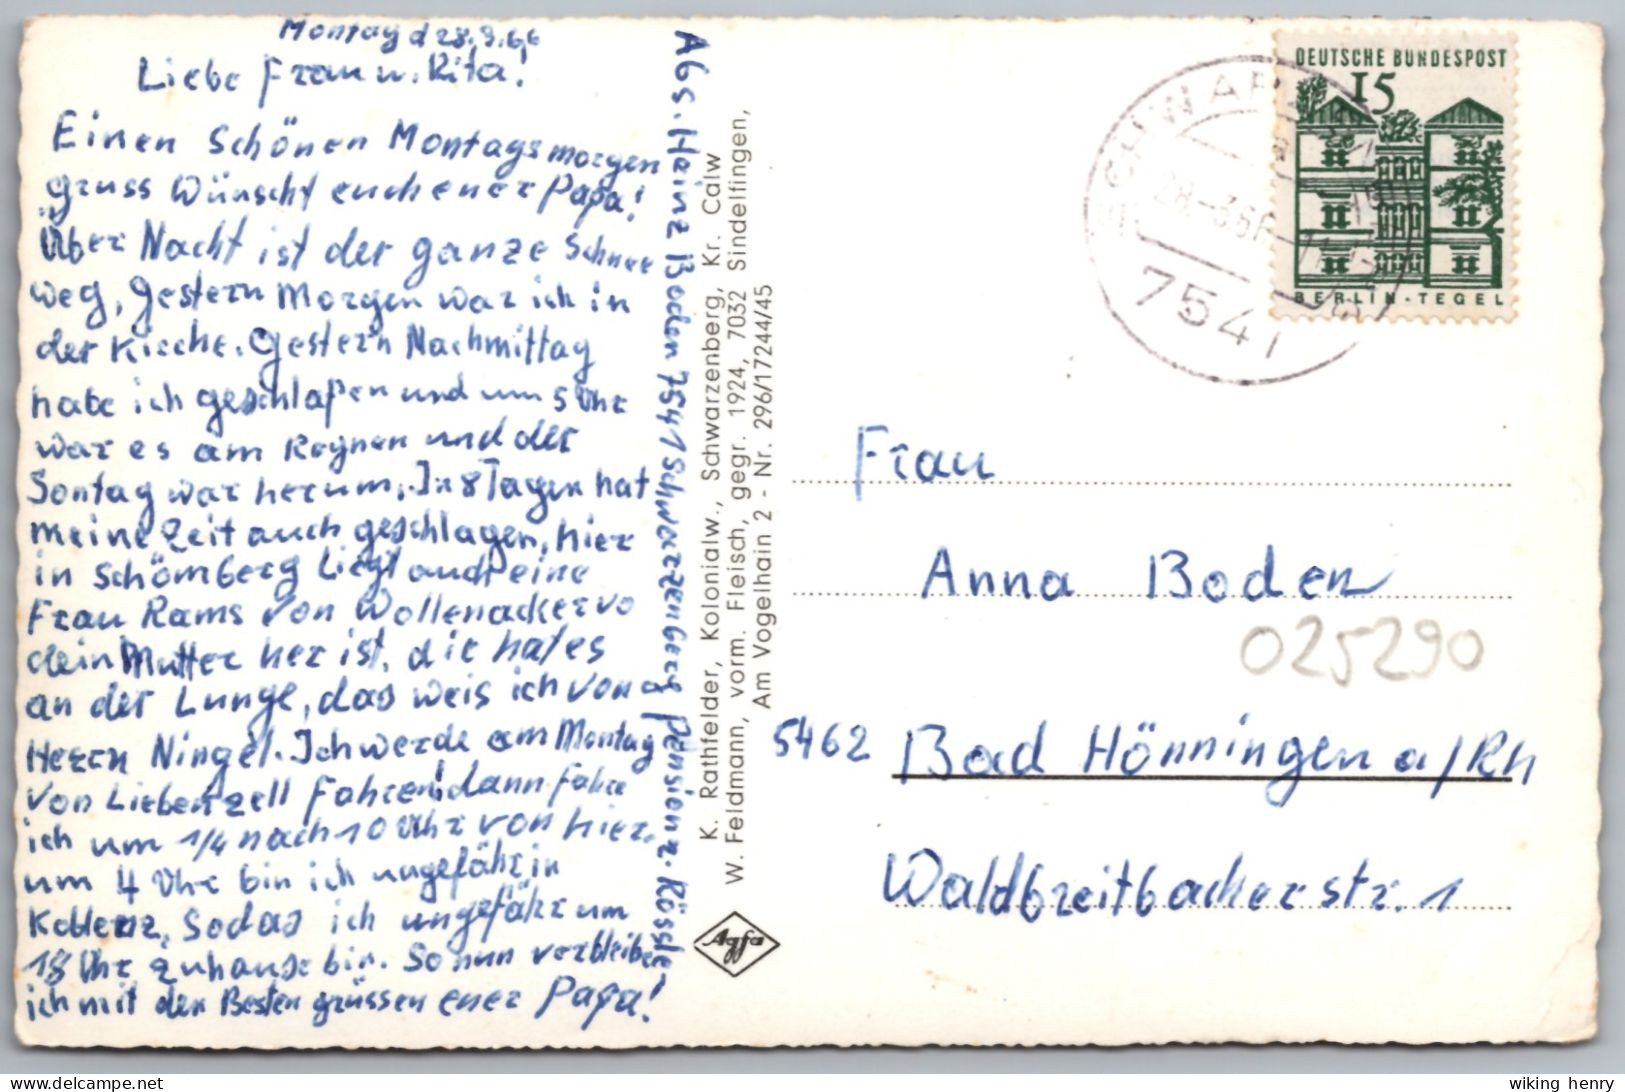 Montag d 28.3.66
Liebe Frau u. Rita!
Einen Schönen Montagsmorgen
gruss Wünscht euch euer Papa!
Über Nacht ist der ganze Schnee
weg, Gestern Morgen war ich in
der Kirche. Gestern Nachmittag
habe ich geschlafen und um 5 Uhr
war es am Regnen und der
Sontag war herum. In 8 Tagen hat
meine Zeit auch geschlagen, hier
in Schömberg Liegt auch eine
Frau Rams von Wollenacker vo
dein Mutter her ist, die hat es
an der Lunge, das weis ich von
Herrn Ningel. Ich werde am Montag
von Liebenzell Fahren! dann fahre
ich um 1/4 nach 10 Uhr von hier.
um 4 Uhr bin ich ungefähr in
Koblenz, Sodas ich ungefähr um
18 Uhr zuhause bin. So nun verbleibe
ich mit den Besten grüssen euer Papa!
Abs. Heinz Boden 7541 Schwarzenberg Pension z. Rössle
K. Rathfelder, Kolonialw., Schwarzenberg, Kr. Calw
W. Feldmann, vorm. Fleisch, gegr. 1924, 7032 Sindelfingen,
Am Vogelhain 2 - Nr. 296/17244/45
Agfa
DEUTSCHE BUNDESPOST
15
BERLIN-TEGEL
28.-3.66
7541
Frau
Anna Boden
025290
5462 Bad Hönningen a/Rh
Waldbreitbacherstr. 1
wiking henry